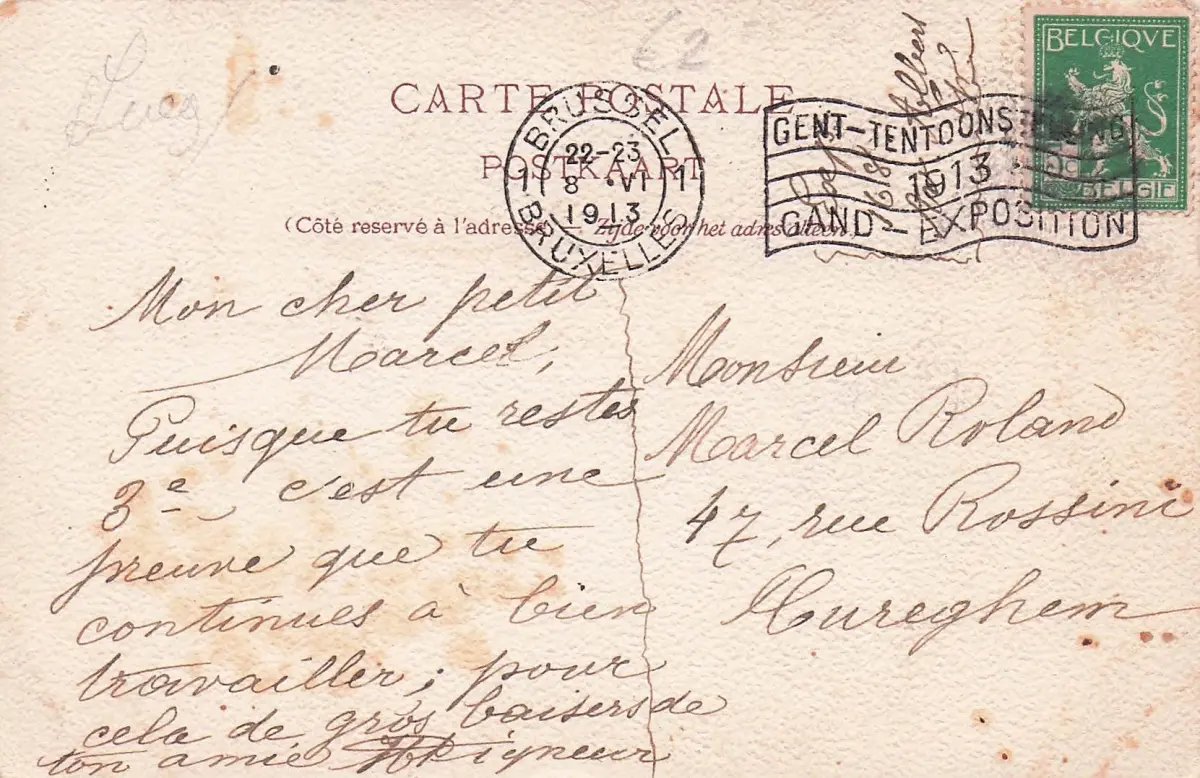 Lucy
62
CARTE POSTALE
POSTKAART
(Côté reservé à l'adresse — Zijde voor het adres alleen)
BRUSSEL 1
22-23
1 8 · VI 1
1913
BRUXELLES
GENT-TENTOONSTELLING
1913
GAND-EXPOSITION
BELGIQUE
BELGIË
Albert
1618
Mon cher petit
Marcel,
Puisque tu restes
3e c'est une
preuve que tu
continues à bien
travailler; pour
cela de gros baisers de
ton amie
Monsieur
Marcel Roland
47, rue Rossini
Cureghem